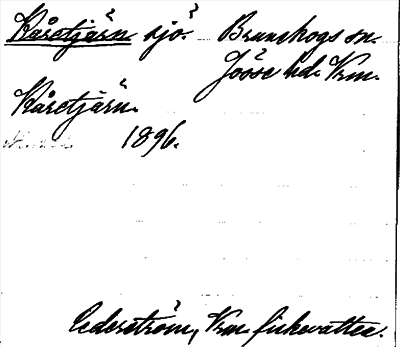 Kåretjärn sjö? Brunskogs sn.
Jösse hd. Vrm.
Kåretjärn.
1896.
Cederström, Vrm fiskevatten.